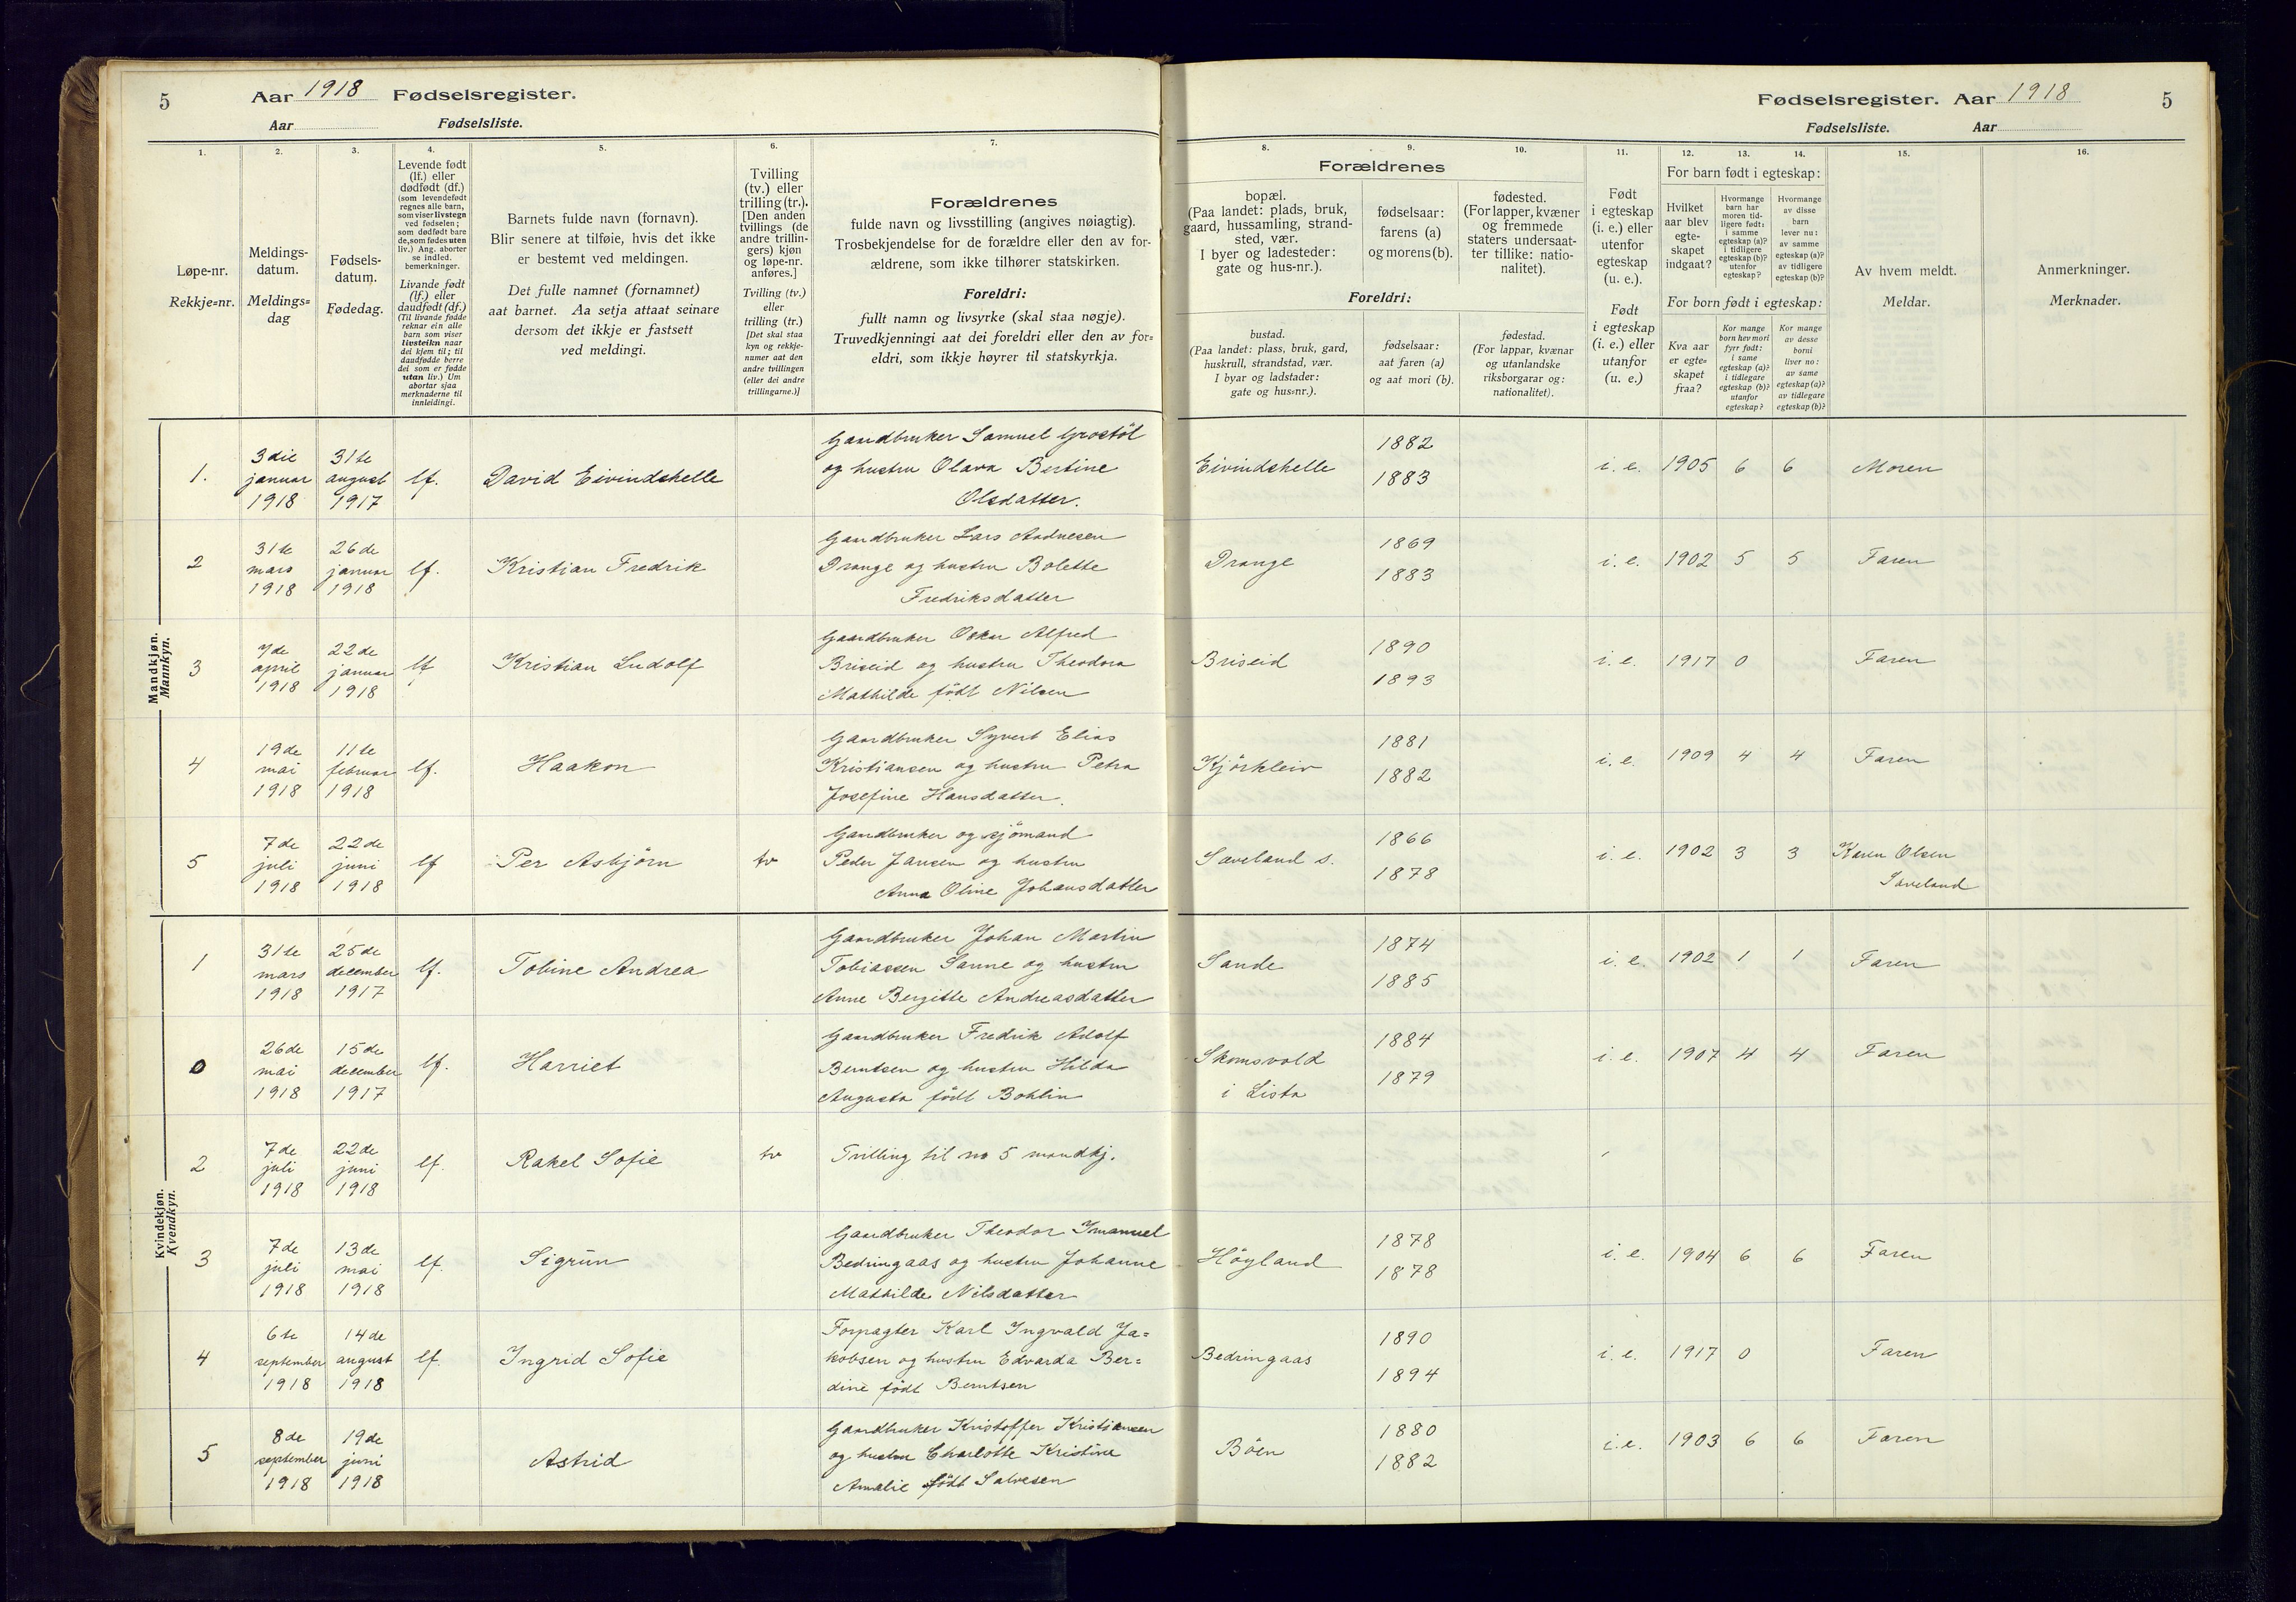 5
Aar 1918 Fødselsregister.
Aar Fødselsliste.
Fødselsregister. Aar 1918
5
Fødselsliste. Aar
1.
Løpe-nr.
Rekkje=nr.
2.
Meldings-
datum.
Meldings=
dag
3.
Fødsels-
datum.
Fødedag.
4.
Levende født
(lf.) eller
dødfødt (df.)
(som levendefødt
regnes alle barn,
som viser livstegn
ved fødselen;
som dødfødt bare
de, som fødes uten
liv.) Ang. aborter
se indled.
bemerkninger.
Livande født
(lf.) eller
daudfødt (df.)
(Til livande fødde
reknar ein alle
barn som viser
livsteikn naar
dei kjem til; til
daudfødde berre
dei som er fødde
utan liv.) Um
abortar sjaa
merknaderne til
innleidingi.
5.
Barnets fulde navn (fornavn).
Blir senere at tilføie, hvis det ikke
er bestemt ved meldingen.
Det fulle namnet (fornamnet)
aat barnet. Aa setja attaat seinare
dersom det ikkje er fastsett
ved meldingi.
6.
Tvilling
(tv.) eller
trilling (tr.).
[Den anden
tvillings (de
andre trillin-
gers) kjøn
og løpe-nr.
anføres.]
Tvilling (tv.)
eller
trilling (tr.)
[Det skal staa
kyn og rekkje-
numer aat den
andre tvillingen
(eller dei andre
trillingarne.)]
7.
Forældrenes
fulde navn og livsstilling (angives nøiagtig).
Trosbekjendelse for de forældre eller den av for-
ældrene, som ikke tilhører statskirken.
Foreldri:
fullt namn og livsyrke (skal staa nøgje).
Truvedkjenningi aat dei foreldri eller den av for=
eldri, som ikkje høyrer til statskyrkja.
8.
9.
10.
Forældrenes
bopæl.
(Paa landet: plads, bruk,
gaard, hussamling, strand-
sted, vær.
I byer og ladesteder:
gate og hus-nr.).
fødselsaar:
farens (a)
og morens (b).
fødested.
(For lapper, kvæner
og fremmede
staters undersaat-
ter tillike: natio-
nalitet).
Foreldri:
bustad.
(Paa landet: plass, bruk, gard,
huskrull, strandstad, vær.
I byar og ladstader:
gate og hus=nr.).
fødselsaar:
aat faren (a)
og aat mori (b).
fødestad.
(For lappar, kvænar
og utanlandske
riksborgarar og:
nationalitet).
11.
Født
i egteskap
(i. e.) eller
utenfor
egteskap
(u. e.).
Født
i egteskap
(i. e.) eller
utanfor
(u. e.)
12.
13.
14.
For barn født i egteskap:
Hvilket
aar blev
egte-
skapet
indgaat?
Hvormange
barn har
moren tid-
ligere født:
i samme
egteskap (a)?
i tidligere
egteskap (b)?
utenfor
egteskap?
Hvormange
av disse
barn
lever nu:
av samme
egteskap (a)?
av tidligere
egteskap (b)?
For born født i egteskap:
Kva aar
er egte=
skapet
fraa?
Kor mange
born hev mori
fyrr født:
i same
egteskap (a)?
i tidlegare
egteskap (b)?
utanfor
egteskap?
Kor mange
av desse
borni
liver no:
av same
egteskap (a)?
av tidlegare
egteskap (b)?
15.
Av hvem meldt.
Meldar.
16.
Anmerkninger.
Merknader.
Mandkjøn.
Mannkyn.
1.
3die
januar
1918
31te
august
1917
lf.
David Eivindshelle
Gaardbruker Samuel Grostöl
og hustru Olava Bertine
Olsdatter.
Eivindshelle
1882
1883
i. e. 1905 6 6 Moren
2
31te
mars
1918
26de
januar
1918
lf.
Kristian Fredrik
Gaardbruker Lars Andresen
Drange og hustru Bolette
Fredriksdatter
Drange
1869
1883
i. e. 1902 5 5 Faren
3
7de
april
1918
22de
januar
1918
lf
Kristian Ludolf
Gaardbruker Oskar Alfred
Briseid og hustru Theodora
Mathilde födt Nilsen
Briseid
1890
1893
i. e. 1917 0 Faren
4
19de
mai
1918
11te
februar
1918
lf.
Haakon
Gaardbruker Syvert Elias
Kristiansen og hustru Petra
Josefine Hansdatter.
Kjörkleiv
1881
1882
i. e. 1909 4 4 Faren
5
7de
juli
1918
22de
juni
1918
lf
Per Asbjörn
tv
Gaardbruker og sjömand
Peder Jansen og hustru
Anna Oline Johansdatter
Saveland s.
1866
1878
i. e. 1902 3 3 Karen Olsen
Saveland
Kvindekjøn.
Kvendkyn.
1
31te
mars
1918
25de
december
1917
lf.
Tobine Andrea
Gaardbruker Johan Martin
Tobiassen Sanne og hustru
Anne Bergitte Andreasdatter
Sande
1874
1885
i. e. 1902 1 1 Faren
0
26de
mai
1918
15de
december
1917
lf.
Harriet
Gaardbruker Fredrik Adolf
Berntsen og hustru Hilda
Augusta födt Bohlin
Skomsvold
i Lista
1884
1879
i. e. 1907 4 4 Faren
2
7de
juli
1918
22de
juni
1918
lf.
Rakel Sofie
tv
Tvilling til no 5 mandkj.
3
7de
juli
1918
13de
mai
1918
lf.
Sigrun
Gaardbruker Theodor Imanuel
Bedringaas og hustru Johanne
Mathilde Nilsdatter
Höyland
1878
1878
i. e. 1904 6 6 Faren
4
6te
september
1918
14de
august
1918
lf.
Ingrid Sofie
Forpagter Karl Ingvald Ja=
kobsen og hustru Edvarda Ber=
dine födt Berntsen
Bedringaas
1890
1894
i. e. 1917 0 Faren
5
8de
september
1918
19de
juni
1918
Astrid
Gaardbruker Kristoffer Kristiansen
og hustru Charlotte Kristine
Amalie födt Salvesen
Böen
1880
1882
i. e. 1903 6 6 Faren